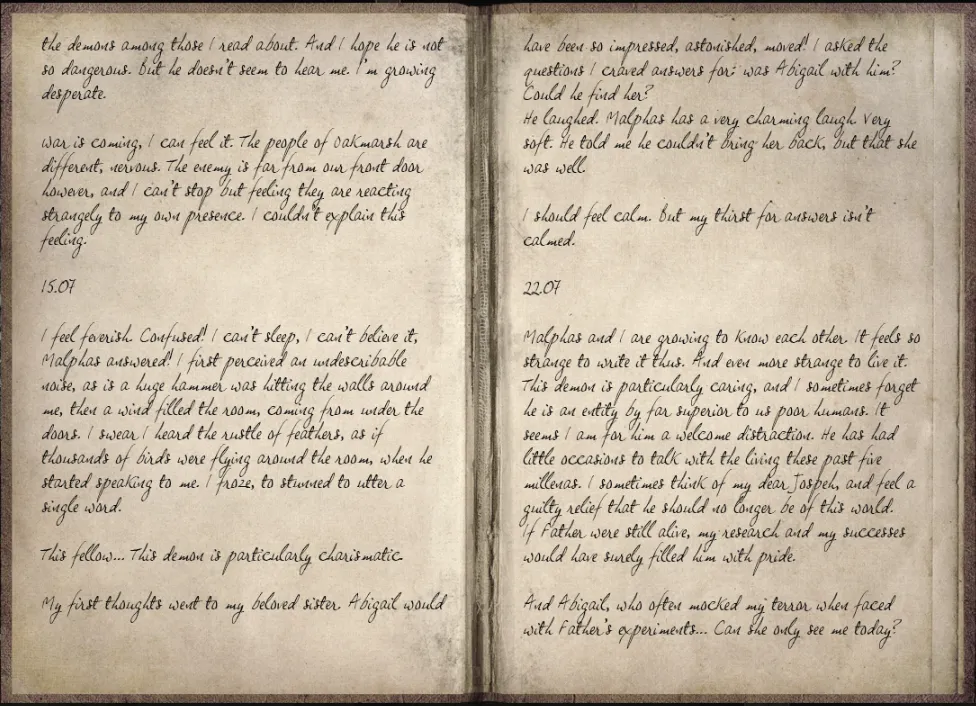 the demons among those I read about. And I hope he is not
so dangerous. But he doesn't seem to hear me. I'm growing
desperate.
War is coming, I can feel it. The people of Oakmarsh are
different, nervous. The enemy is far from our front door
however, and I can't stop but feeling they are reacting
strangely to my own presence. I couldn't explain this
feeling.
15.07
I feel feverish. Confused! I can't sleep, I can't believe it,
Malphas answered! I first perceived an undescribable
noise, as is a huge hammer was hitting the walls around
me, then a wind filled the room, coming from under the
doors. I swear I heard the rustle of feathers, as if
thousands of birds were flying around the room, when he
started speaking to me. I froze, to stunned to utter a
single word.
This fellow... This demon is particularly charismatic.
My first thoughts went to my beloved sister. Abigail would
have been so impressed, astonished, moved! I asked the
questions I craved answers for: was Abigail with him?
Could he find her?
He laughed. Malphas has a very charming laugh. Very
soft. He told me he couldn't bring her back, but that she
was well.
I should feel calm. But my thirst for answers isn't
calmed.
22.07
Malphas and I are growing to know each other. It feels so
strange to write it thus. And even more strange to live it.
This demon is particularly caring, and I sometimes forget
he is an entity by far superior to us poor humans. It
seems I am for him a welcome distraction. He has had
little occasions to talk with the living these past five
millenas. I sometimes think of my dear Jospeh, and feel a
guilty relief that he should no longer be of this world.
If Father were still alive, my research and my successes
would have surely filled him with pride.
And Abigail, who often mocked my terror when faced
with Father's experiments... Can she only see me today?